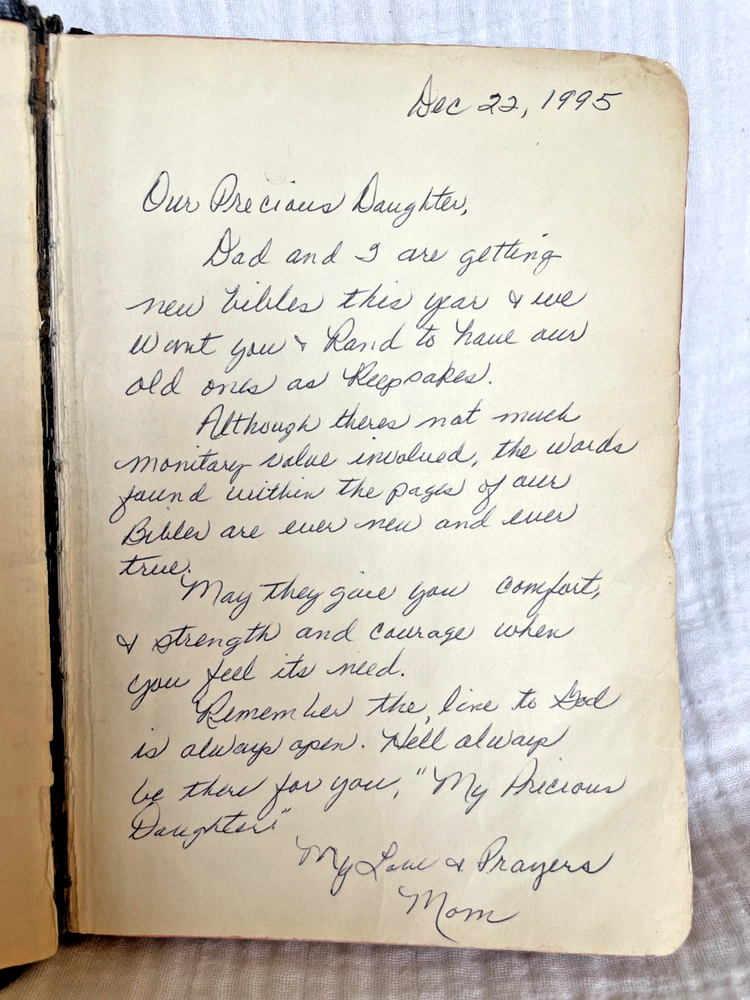 Dec 22, 1995
Our Precious Daughter,
Dad and I are getting
new bibles this year & we
want you & Rand to have our
old ones as Keepsakes.
Although theres not much
monitary value involved, the words
found within the pages of our
Bibles are ever new and ever
true.
May they give you comfort,
& strength and courage when
you feel its need.
Remember the, line to God
is always open. Hell always
be there for you, "My Precious
Daughter."
My Love & Prayers
Mom